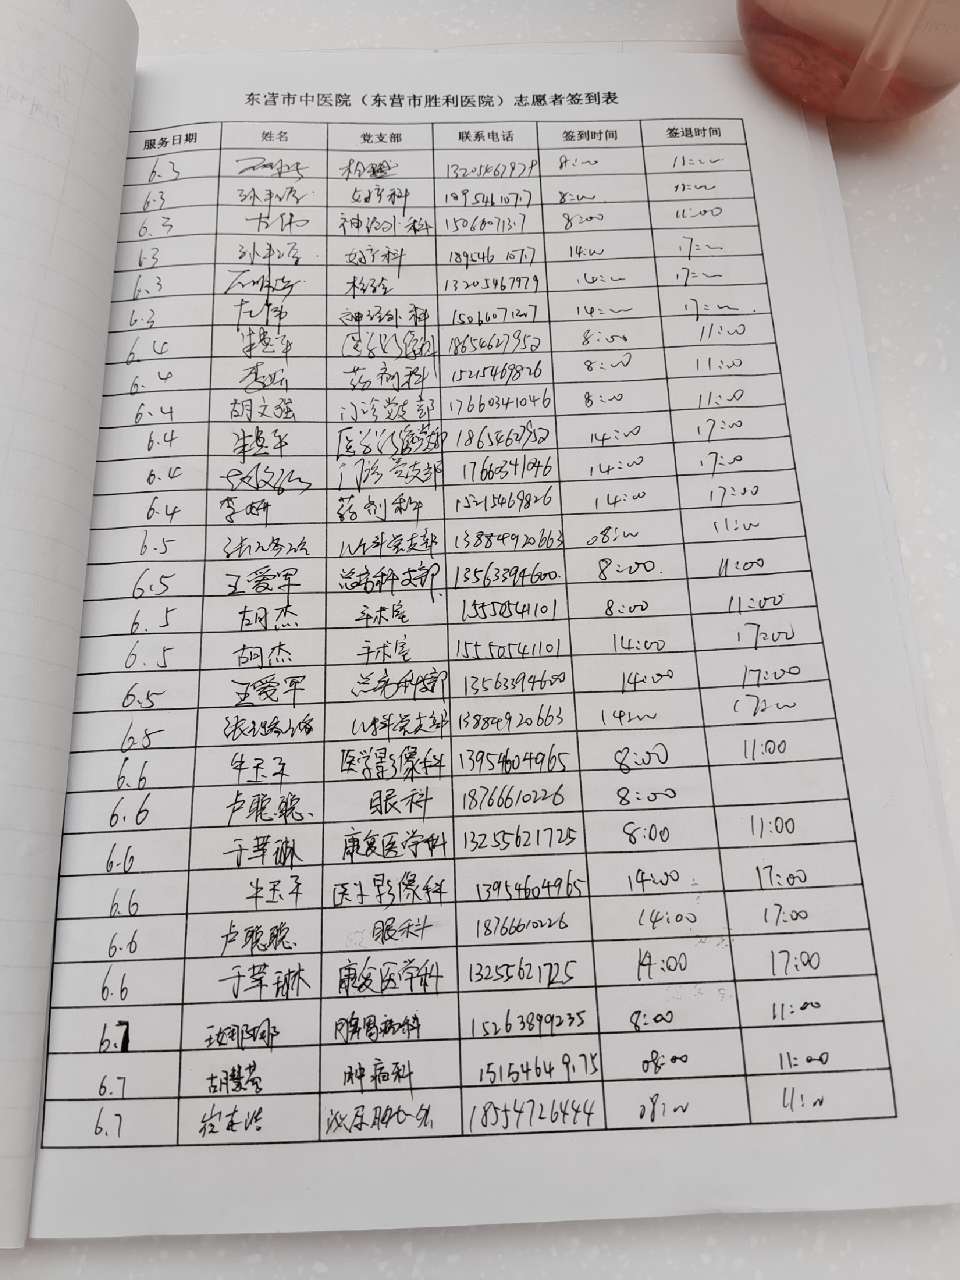 东营市中医院（东营市胜利医院）志愿者签到表
服务日期 姓名 党支部 联系电话 签到时间 签退时间
6.3 检验 13205467979 8:00 11:00
6.3 妇产科 8:00 11:00
6.3 左伟 神经外科 8:00 11:00
6.3 妇产科 14:00 17:00
6.3 检验 13205467979 14:00 17:00
6.3 左伟 神经外科 14:00 17:00
6.4 18654627952 8:00 11:00
6.4 李妍 药剂科 15215469826 8:00 11:00
6.4 胡文强 门诊党支部 17660341046 8:00 11:00
6.4 18654627952 14:00 17:00
6.4 门诊党支部 17660341046 14:00 17:00
6.4 李妍 药剂科 15215469826 14:00 17:00
6.5 儿科党支部 13884920663 08:00 11:00
6.5 王爱军 13563394600 8:00 11:00
6.5 胡杰 手术室 15550541101 8:00 11:00
6.5 胡杰 手术室 15550541101 14:00 17:00
6.5 王爱军 13563394600 14:00 17:00
6.5 儿科党支部 13884920663 14:00 17:00
6.6 牛玉平 医学影像科 13954604965 8:00 11:00
6.6 卢聪聪 眼科 18766610226 8:00
6.6 于苹琳 康复医学科 13255621725 8:00 11:00
6.6 牛玉平 医学影像科 13954604965 14:00 17:00
6.6 卢聪聪 眼科 18766610226 14:00 17:00
6.6 于苹琳 康复医学科 13255621725 14:00 17:00
6.7 王娜娜 脾胃病科 15263899235 8:00 11:00
6.7 胡慧莹 肿瘤科 15154649175 08:00 11:00
6.7 18554726444 08:00 11:00